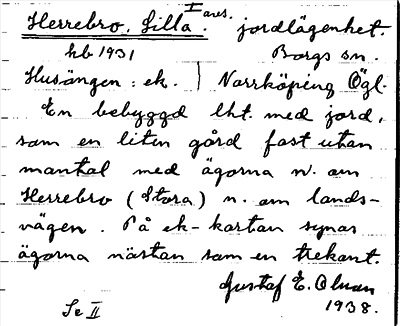 Herrebro, Lilla. I ares. jordlägenhet.
hb 1931 Borgs sn.
Husängen: ek. ) Norrköping Ögl.
En bebyggd lht. med jord,
som en liten gård fast utan
mantal med ägorna n. om
Herrebro (Stora) n. om lands-
vägen. På ek-kartan synas
ägorna nästan som en trekant.
Gustaf E. Olsson
1938.
Se II